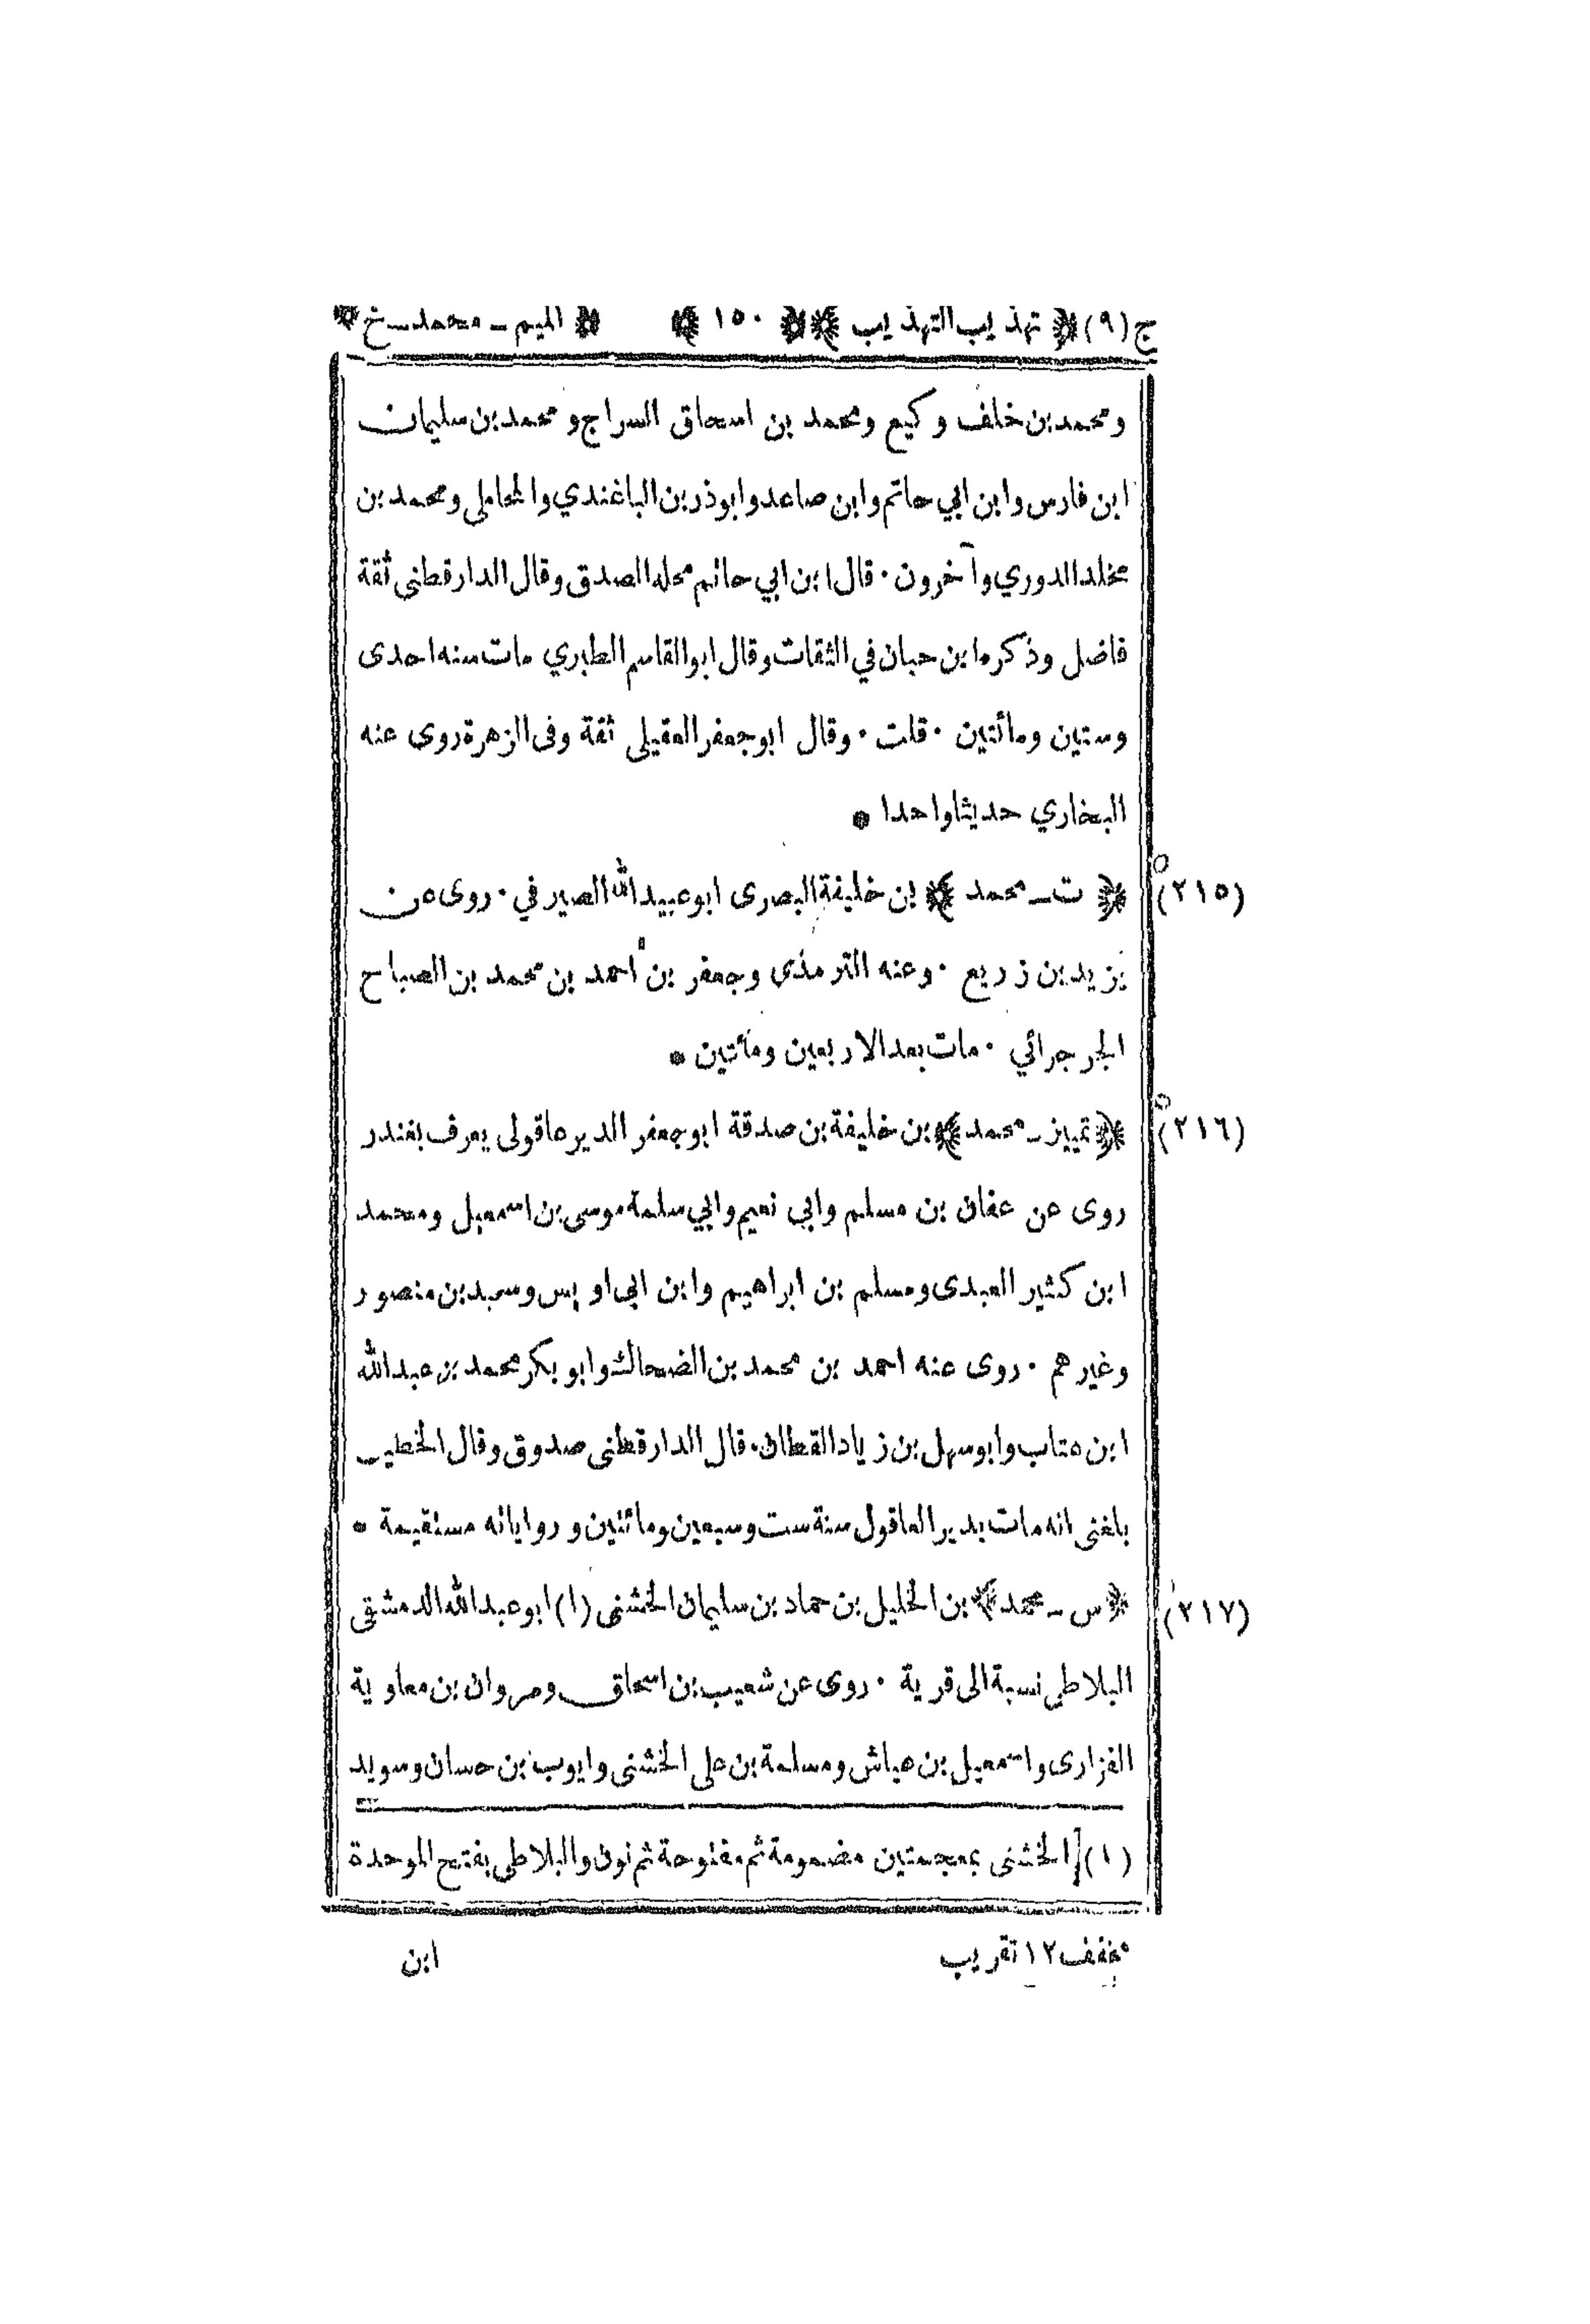 ج (٩) ﴿ تهذيب التهذيب ﴾ ﴿ ١٥٠ ﴾ ﴿ الميم ـ محمد ـ خ ﴾
ومحمد بن خلف وكيع ومحمد بن اسحاق السراج و محمد بن سليمان
ابن فارس وابن ابي حاتم وابن صاعد وابوذر بن الباغندي والمحاملي ومحمد بن
مخلد الدوري وآخرون ٠ قال ابن ابي حاتم محله الصدق وقال الدارقطنى ثقة
فاضل وذكره ابن حبان في الثقات وقال ابوالقاسم الطبري مات سنه احدى
وستين ومأتتين ٠ قلت ٠ وقال ابو جعفر العقيلى ثقة وفى الزهرة روى عنه
البخاري حديثا واحدا *
(٢١٥) ﴿ ت ـ محمد ﴾ بن خليفة البصرى ابو عبيد الله الصيرفي ٠ روى عن
يزيد بن زريع ٠ وعنه الترمذى وجعفر بن أحمد بن محمد بن الصباح
الجرجرائي ٠ مات بعد الاربعين ومأتين *
(٢١٦) ﴿ تمييز ـ محمد ﴾ بن خليفة بن صدقة ابو جعفر الديرعاقولى يعرف بغندر
روى عن عفان بن مسلم وابي نعيم وابي سلمة موسى بن اسمعيل ومحمد
ابن كثير العبدى ومسلم بن ابراهيم وابن ابى اويس وسعيد بن منصور
وغيرهم ٠ روى عنه احمد بن محمد بن الضحاك وابو بكر محمد بن عبدالله
ابن عتاب وابو سهل بن زياد القطان ٠ قال الدارقطنى صدوق وقال الخطيب
بلغنى انه مات بدير العاقول سنة ست وسبعين ومائتين و رواياته مستقيمة *
(٢١٧) ﴿ س ـ محمد ﴾ بن الخليل بن حماد بن سليمان الخشنى (١) ابو عبدالله الدمشقى
البلاطي نسبة الى قرية ٠ روى عن شعيب بن اسحاق ومروان بن معاوية
الفزارى واسمعيل بن عياش ومسلمة بن على الخشنى وايوب بن حسان وسويد
(١) الخشنى بمعجمتين مضمومة ثم مفتوحة ثم نون والبلاطى بفتح الموحدة
مخفف ١٢ تقريب
ابن